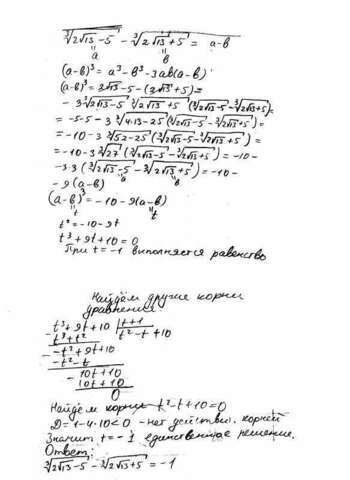 ∛(2√13-5) - ∛(2√13+5) = a-b
a b
(a-b)³ = a³-b³-3ab(a-b)
(a-b)³ = 2√13-5-(2√13+5)=
- 3∛(2√13-5) ∛(2√13+5) (∛(2√13-5)-∛(2√13+5))=
= -5-5-3∛(4·13-25)(∛(2√13-5)-∛(2√13+5))=
= -10-3∛(52-25)(∛(2√13-5)-∛(2√13+5))=
= -10-3∛27(∛(2√13-5)-∛(2√13+5))= -10-
-3·3(∛(2√13-5)-∛(2√13+5))= -10-
a b
-9(a-b)
(a-b)³ = -10-9(a-b)
t t
t²=-10-9t
t³+9t+10=0
При t=-1 выполняется равенство
Найдём другие корни
уравнения
t³+9t+10 | t+1
t³+t² t²-t+10
-t²+9t+10
-t²-t
10t+10
10t+10
0
Найдём корни t²-t+10=0
D=1-4·10<0 -нет действ. корней
Значит t=-1 единственное решение.
Ответ:
∛(2√13-5)-∛(2√13+5)=-1